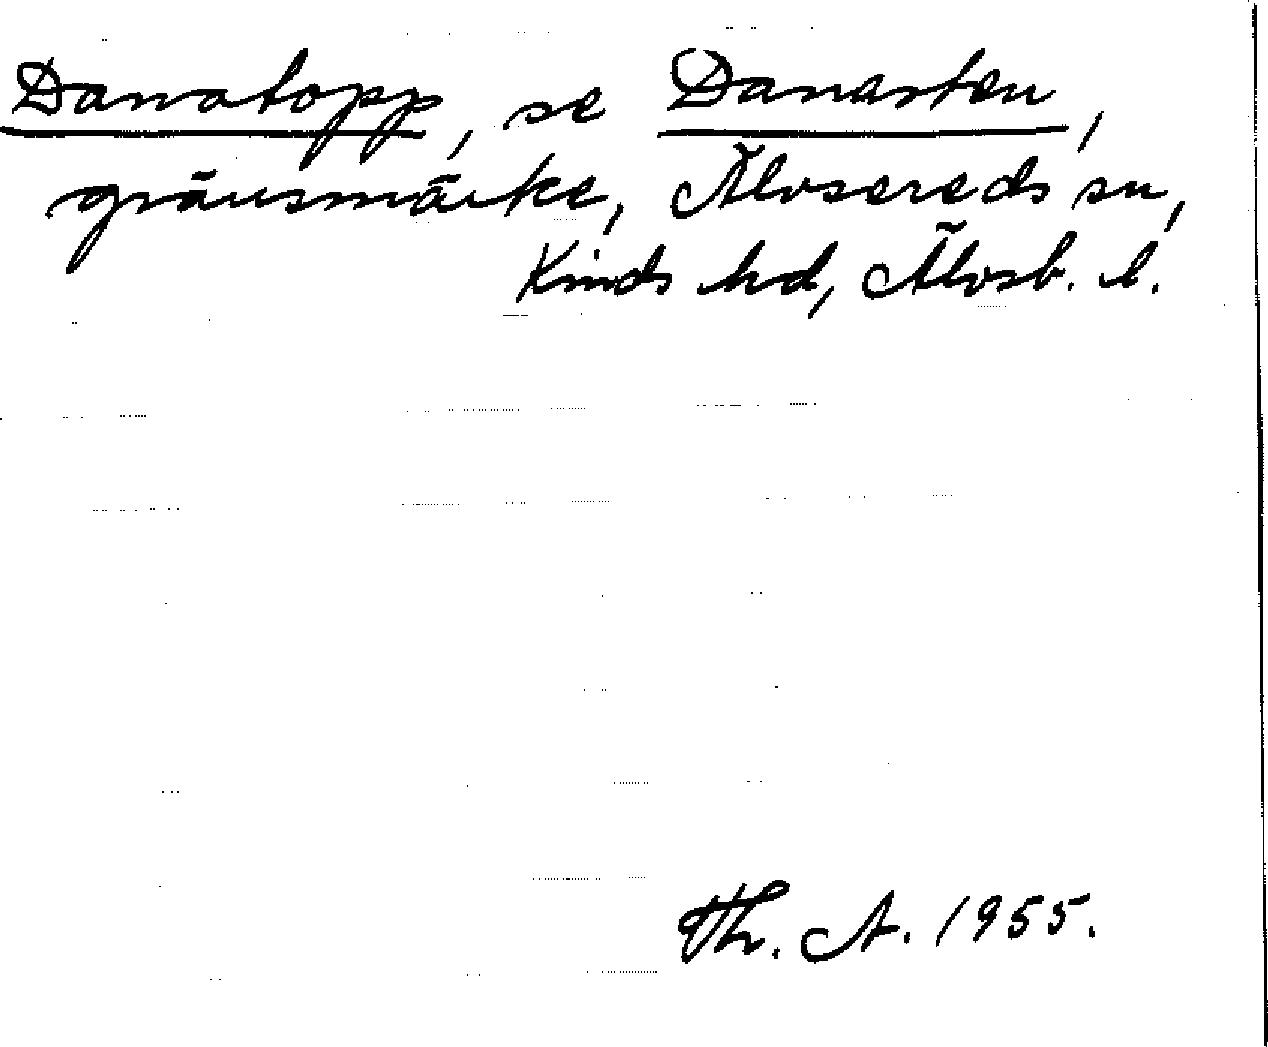 Danatopp, se Danasten,
gränsmärke, Älvsereds sn,
Kinds hd, Älvsb. l.
Th. A. 1955.